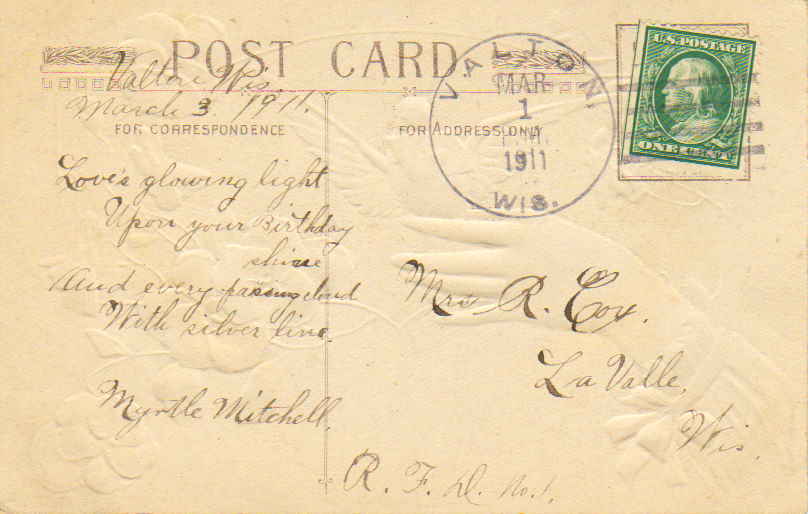 POST CARD.
Valton Wis.
March 3 1911.
FOR CORRESPONDENCE
Love's glowing light
Upon your Birthday
shine
And every passing cloud
With silver line.
Myrtle Mitchell,
FOR ADDRESS ONLY
VALTON,
MAR
1
1911
WIS.
U.S. POSTAGE
ONE CENT
Mrs R. Cox.
La Valle,
Wis.
R. F. D. No. 1.